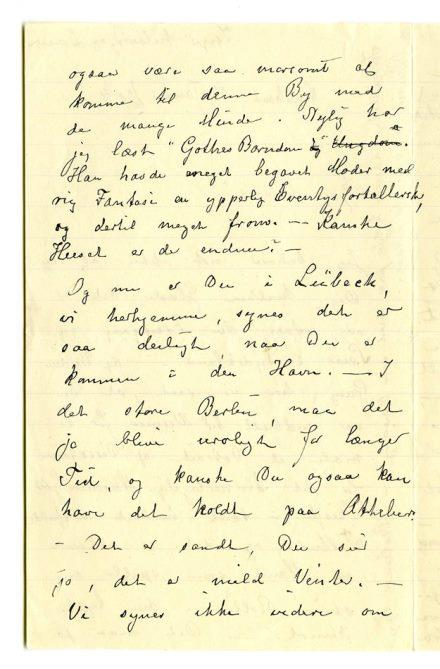 ogsaa være saa morsomt at
komme til denne By med
de mange Minder. Nylig har
jeg læst "Gothes Barndom og" Ungdom.
Han havde meget begavet Moder med
rig Fantasi en ypperlig Eventyrfortællerske,
og dertil meget from. — Kanske
Huset er der endnu? —
Og nu er Du i Lübeck,
vi herhjemme, synes det er
saa deiligt, naar Du er
kommen i den Havn. — I
det store Berlin, maa det
jo blive uroligt for længer
Tid, og kanske Du ogsaa kan
have det koldt paa Atelier.
— Det er sandt, Du siër
jo, det er mild Vinter. —
Vi synes ikke videre om